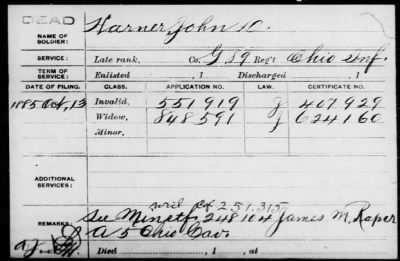 DEAD
NAME OF SOLDIER: Harner, John D.
SERVICE: Late rank, Co. G 89 Reg't Ohio Inf.
TERM OF SERVICE: Enlisted , 1 Discharged , 1
DATE OF FILING. CLASS. APPLICATION NO. LAW. CERTIFICATE NO.
1885 Oct, 13 Invalid, 551919 J 407929
Widow, 848591 J 624160
Minor,
ADDITIONAL SERVICES:
251,315
REMARKS: See 248104 James M. Raper
A 5 Ohio Cav.
Died , 1 , at